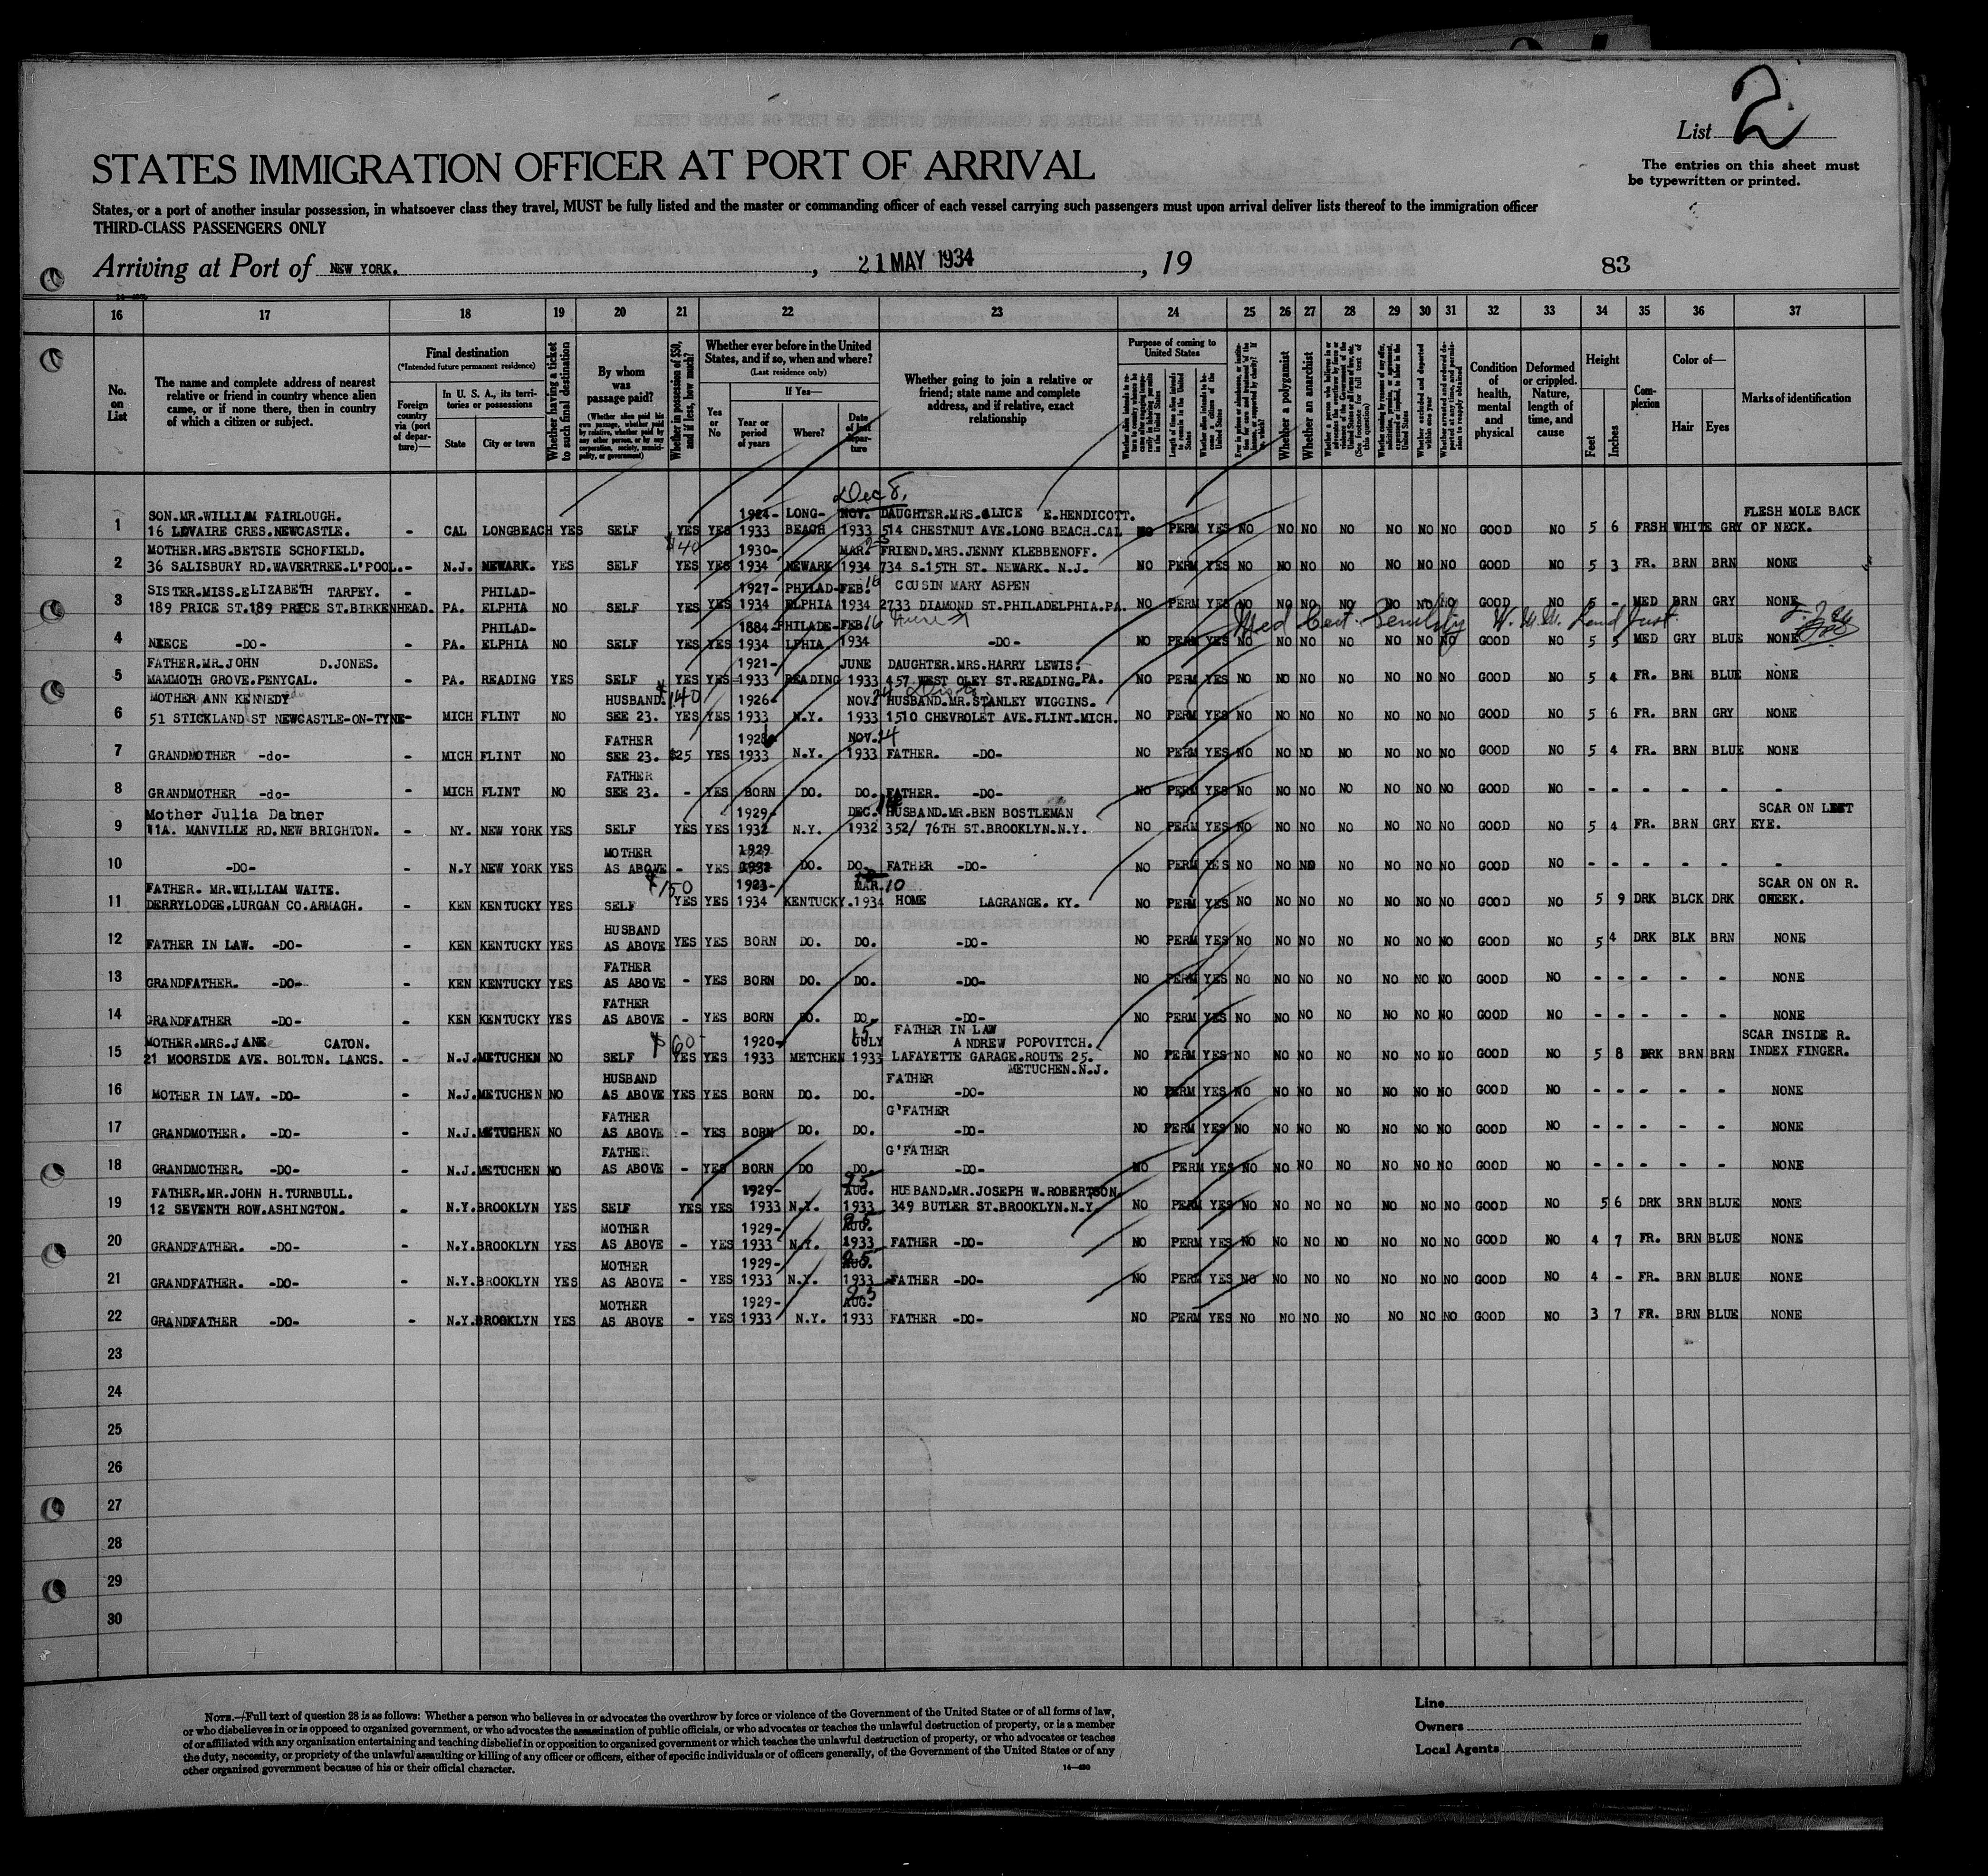 List 2
The entries on this sheet must
be typewritten or printed.
STATES IMMIGRATION OFFICER AT PORT OF ARRIVAL
States, or a port of another insular possession, in whatsoever class they travel, MUST be fully listed and the master or commanding officer of each vessel carrying such passengers must upon arrival deliver lists thereof to the immigration officer
THIRD-CLASS PASSENGERS ONLY
Arriving at Port of NEW YORK. , 21 MAY 1934 , 19
83
16 17 18 19 20 21 22 23 24 25 26 27 28 29 30 31 32 33 34 35 36 37
No. on List
The name and complete address of nearest relative or friend in country whence alien came, or if none there, then in country of which a citizen or subject.
Final destination
(*Intended future permanent residence)
Foreign country via (port of departure)—
In U. S. A., its territories or possessions
State
City or town
Whether having a ticket to such final destination
By whom was passage paid?
(Whether alien paid his own passage, whether paid by relative, whether paid by any other person, or by any corporation, society, municipality, or government)
Whether in possession of $50, and if less, how much?
Whether ever before in the United States, and if so, when and where?
(Last residence only)
Yes or No
If Yes—
Year or period of years
Where?
Date of last departure
Whether going to join a relative or friend; state name and complete address, and if relative, exact relationship
Purpose of coming to United States
Length of time alien intends to remain in the United States
Whether alien intends to become a citizen of the United States
Whether a polygamist
Whether an anarchist
Whether excluded and deported within one year
Condition of health, mental and physical
Deformed or crippled. Nature, length of time, and cause
Height
Feet
Inches
Complexion
Color of—
Hair
Eyes
Marks of identification
Dec 8.
SON.MR.WILLIAM FAIRLOUGH. 1924- LONG- NOV. DAUGHTER.MRS.ALICE E.HENDICOTT. FLESH MOLE BACK
1 16 LOVAIRE CRES.NEWCASTLE. - CAL LONGBEACH YES SELF YES YES 1933 BEACH 1933 514 CHESTNUT AVE.LONG BEACH.CAL NO PERM YES NO NO NO NO NO NO NO GOOD NO 5 6 FRSH WHITE GRY OF NECK.
MOTHER.MRS.BETSIE SCHOFIELD. $40 1930- MAR. FRIEND.MRS.JENNY KLEBBENOFF.
2 36 SALISBURY RD.WAVERTREE.L'POOL. - N.J. NEWARK. YES SELF YES YES 1934 NEWARK 1934 734 S.15TH ST. NEWARK. N.J. NO PERM YES NO NO NO NO NO NO NO GOOD NO 5 3 FR. BRN BRN NONE
SISTER.MISS.ELIZABETH TARPEY. PHILAD- 1927- PHILAD- FEB. COUSIN MARY ASPEN
3 189 PRICE ST.189 PRICE ST.BIRKENHEAD. PA. ELPHIA NO SELF YES YES 1934 ELPHIA 1934 2733 DIAMOND ST.PHILADELPHIA.PA. NO PERM YES NO NO NO NO NO NO NO GOOD NO 5 - MED BRN GRY NONE
PHILAD- 1884- PHILADE- FEB 16 Med Cert. Senility
4 NEECE -DO- - PA. ELPHIA NO SELF YES YES 1934 LPHIA 1934 -DO- NO PERM YES NO NO NO NO NO NO NO GOOD NO 5 5 MED GRY BLUE NONE
FATHER.MR.JOHN D.JONES. 1921- JUNE DAUGHTER.MRS.HARRY LEWIS.
5 MAMMOTH GROVE.PENYCAL. - PA. READING YES SELF YES YES 1933 READING 1933 457 WEST OLEY ST.READING.PA. NO PERM YES NO NO NO NO NO NO NO GOOD NO 5 4 FR. BRN BLUE NONE
MOTHER ANN KENNEDY HUSBAND. $140 1926- NOV. 24 HUSBAND.MR.STANLEY WIGGINS.
6 51 STICKLAND ST NEWCASTLE-ON-TYNE- MICH FLINT NO SEE 23. YES YES 1933 N.Y. 1933 1510 CHEVROLET AVE.FLINT.MICH. NO PERM YES NO NO NO NO NO NO NO GOOD NO 5 6 FR. BRN GRY NONE
FATHER 1928- NOV. 24
7 GRANDMOTHER -do- - MICH FLINT NO SEE 23. $25 YES 1933 N.Y. 1933 FATHER. -DO- NO PERM YES NO NO NO NO NO NO NO GOOD NO 5 4 FR. BRN BLUE NONE
FATHER
8 GRANDMOTHER -do- - MICH FLINT NO SEE 23. - YES BORN DO. DO. FATHER. -DO- NO PERM YES NO NO NO NO NO NO NO GOOD NO - - - - - -
Mother Julia Dabner 1929- DEC. HUSBAND.MR.BEN BOSTLEMAN SCAR ON LEFT
9 11A. MANVILLE RD.NEW BRIGHTON. - NY. NEW YORK YES SELF YES YES 1932 N.Y. 1932 352/ 76TH ST.BROOKLYN.N.Y. NO PERM YES NO NO NO NO NO NO NO GOOD NO 5 4 FR. BRN GRY EYE.
MOTHER 1929
10 -DO- N.Y NEW YORK YES AS ABOVE - YES 1932 DO. DO. FATHER -DO- NO PERM YES NO NO NO NO NO NO NO GOOD NO - - - - - -
FATHER. MR.WILLIAM WAITE. $150 1923- MAR. 10 SCAR ON ON R.
11 DERRYLODGE.LURGAN CO.ARMAGH. - KEN KENTUCKY YES SELF YES YES 1934 KENTUCKY. 1934 HOME LAGRANGE. KY. NO PERM YES NO NO NO NO NO NO NO GOOD NO 5 9 DRK BLCK DRK CHEEK.
HUSBAND
12 FATHER IN LAW. -DO- - KEN KENTUCKY YES AS ABOVE YES YES BORN DO. DO. -DO- NO PERM YES NO NO NO NO NO NO NO GOOD NO 5 4 DRK BLK BRN NONE
FATHER
13 GRANDFATHER. -DO- - KEN KENTUCKY YES AS ABOVE - YES BORN DO. DO. -DO- NO PERM YES NO NO NO NO NO NO NO GOOD NO - - - - - NONE
FATHER
14 GRANDFATHER -DO- - KEN KENTUCKY YES AS ABOVE - YES BORN DO. DO. -DO- NO PERM YES NO NO NO NO NO NO NO GOOD NO - - - - - NONE
MOTHER.MRS.JANE CATON. $60 1920- 15 JULY FATHER IN LAW ANDREW POPOVITCH. SCAR INSIDE R.
15 21 MOORSIDE AVE. BOLTON. LANCS. - N.J. METUCHEN NO SELF YES YES 1933 METCHEN 1933 LAFAYETTE GARAGE.ROUTE 25. METUCHEN.N.J. NO PERM YES NO NO NO NO NO NO NO GOOD NO 5 8 DRK BRN BRN INDEX FINGER.
HUSBAND FATHER
16 MOTHER IN LAW. -DO- - N.J. METUCHEN NO AS ABOVE YES YES BORN DO. DO. -DO- NO PERM YES NO NO NO NO NO NO NO GOOD NO - - - - - NONE
FATHER G'FATHER
17 GRANDMOTHER. -DO- - N.J. METUCHEN NO AS ABOVE - YES BORN DO. DO. -DO- NO PERM YES NO NO NO NO NO NO NO GOOD NO - - - - - NONE
FATHER G'FATHER
18 GRANDMOTHER. -DO- - N.J. METUCHEN NO AS ABOVE - YES BORN DO DO. -DO- NO PERM YES NO NO NO NO NO NO NO GOOD NO - - - - - NONE
FATHER.MR.JOHN H.TURNBULL. 1929- 25 AUG. HUSBAND.MR.JOSEPH W.ROBERTSON.
19 12 SEVENTH ROW.ASHINGTON. - N.Y. BROOKLYN YES SELF YES YES 1933 N.Y. 1933 349 BUTLER ST.BROOKLYN.N.Y. NO PERM YES NO NO NO NO NO NO NO GOOD NO 5 6 DRK BRN BLUE NONE
MOTHER 1929- 25 AUG.
20 GRANDFATHER. -DO- - N.Y. BROOKLYN YES AS ABOVE - YES 1933 N.Y. 1933 FATHER -DO- NO PERM YES NO NO NO NO NO NO NO GOOD NO 4 7 FR. BRN BLUE NONE
MOTHER 1929- 25 AUG.
21 GRANDFATHER. -DO- - N.Y. BROOKLYN YES AS ABOVE - YES 1933 N.Y. 1933 FATHER -DO- NO PERM YES NO NO NO NO NO NO NO GOOD NO 4 - FR. BRN BLUE NONE
MOTHER 1929- 25 AUG.
22 GRANDFATHER -DO- - N.Y. BROOKLYN YES AS ABOVE - YES 1933 N.Y. 1933 FATHER -DO- NO PERM YES NO NO NO NO NO NO NO GOOD NO 3 7 FR. BRN BLUE NONE
23
24
25
26
27
28
29
30
NOTE.—Full text of question 28 is as follows: Whether a person who believes in or advocates the overthrow by force or violence of the Government of the United States or of all forms of law,
or who disbelieves in or is opposed to organized government, or who advocates the assassination of public officials, or who advocates or teaches the unlawful destruction of property, or is a member
of or affiliated with any organization entertaining and teaching disbelief in or opposition to organized government or which teaches the unlawful destruction of property, or who advocates or teaches
the duty, necessity, or propriety of the unlawful assaulting or killing of any officer or officers, either of specific individuals or of officers generally, of the Government of the United States or of any
other organized government because of his or their official character.
14—480
Line
Owners
Local Agents